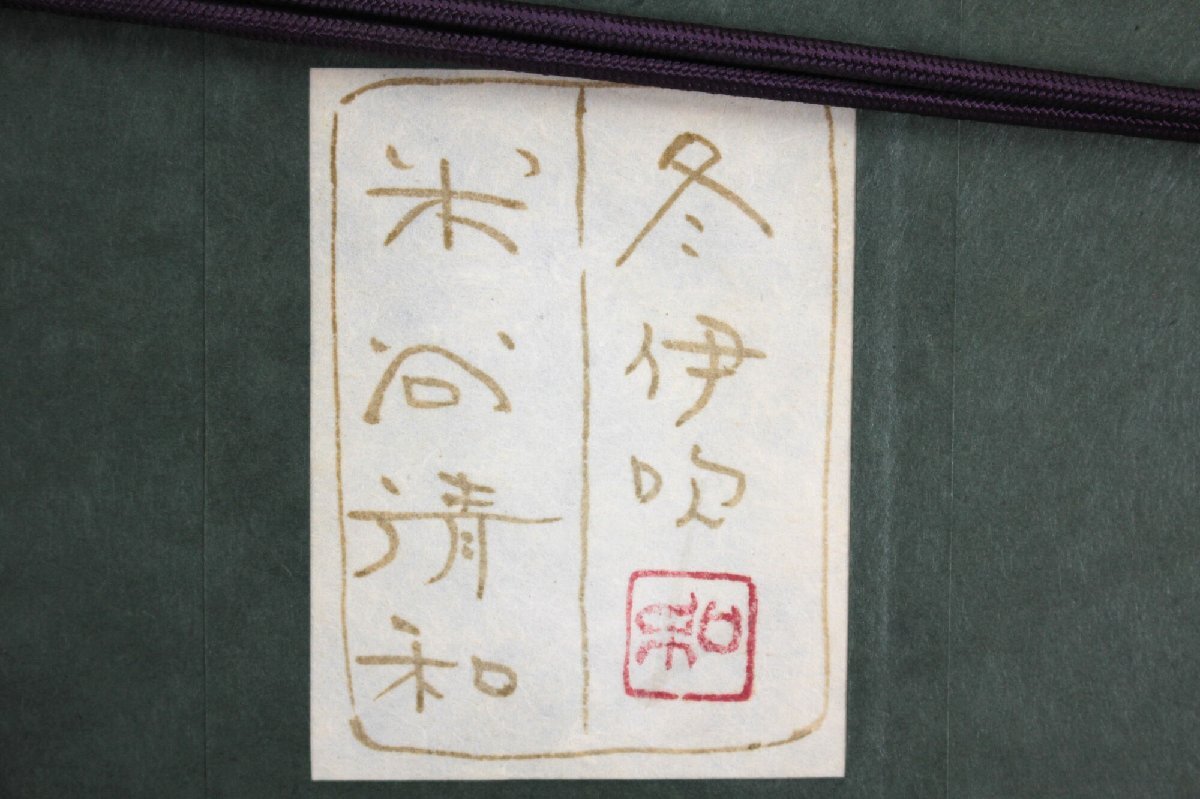 冬伊吹
和
米谷清和